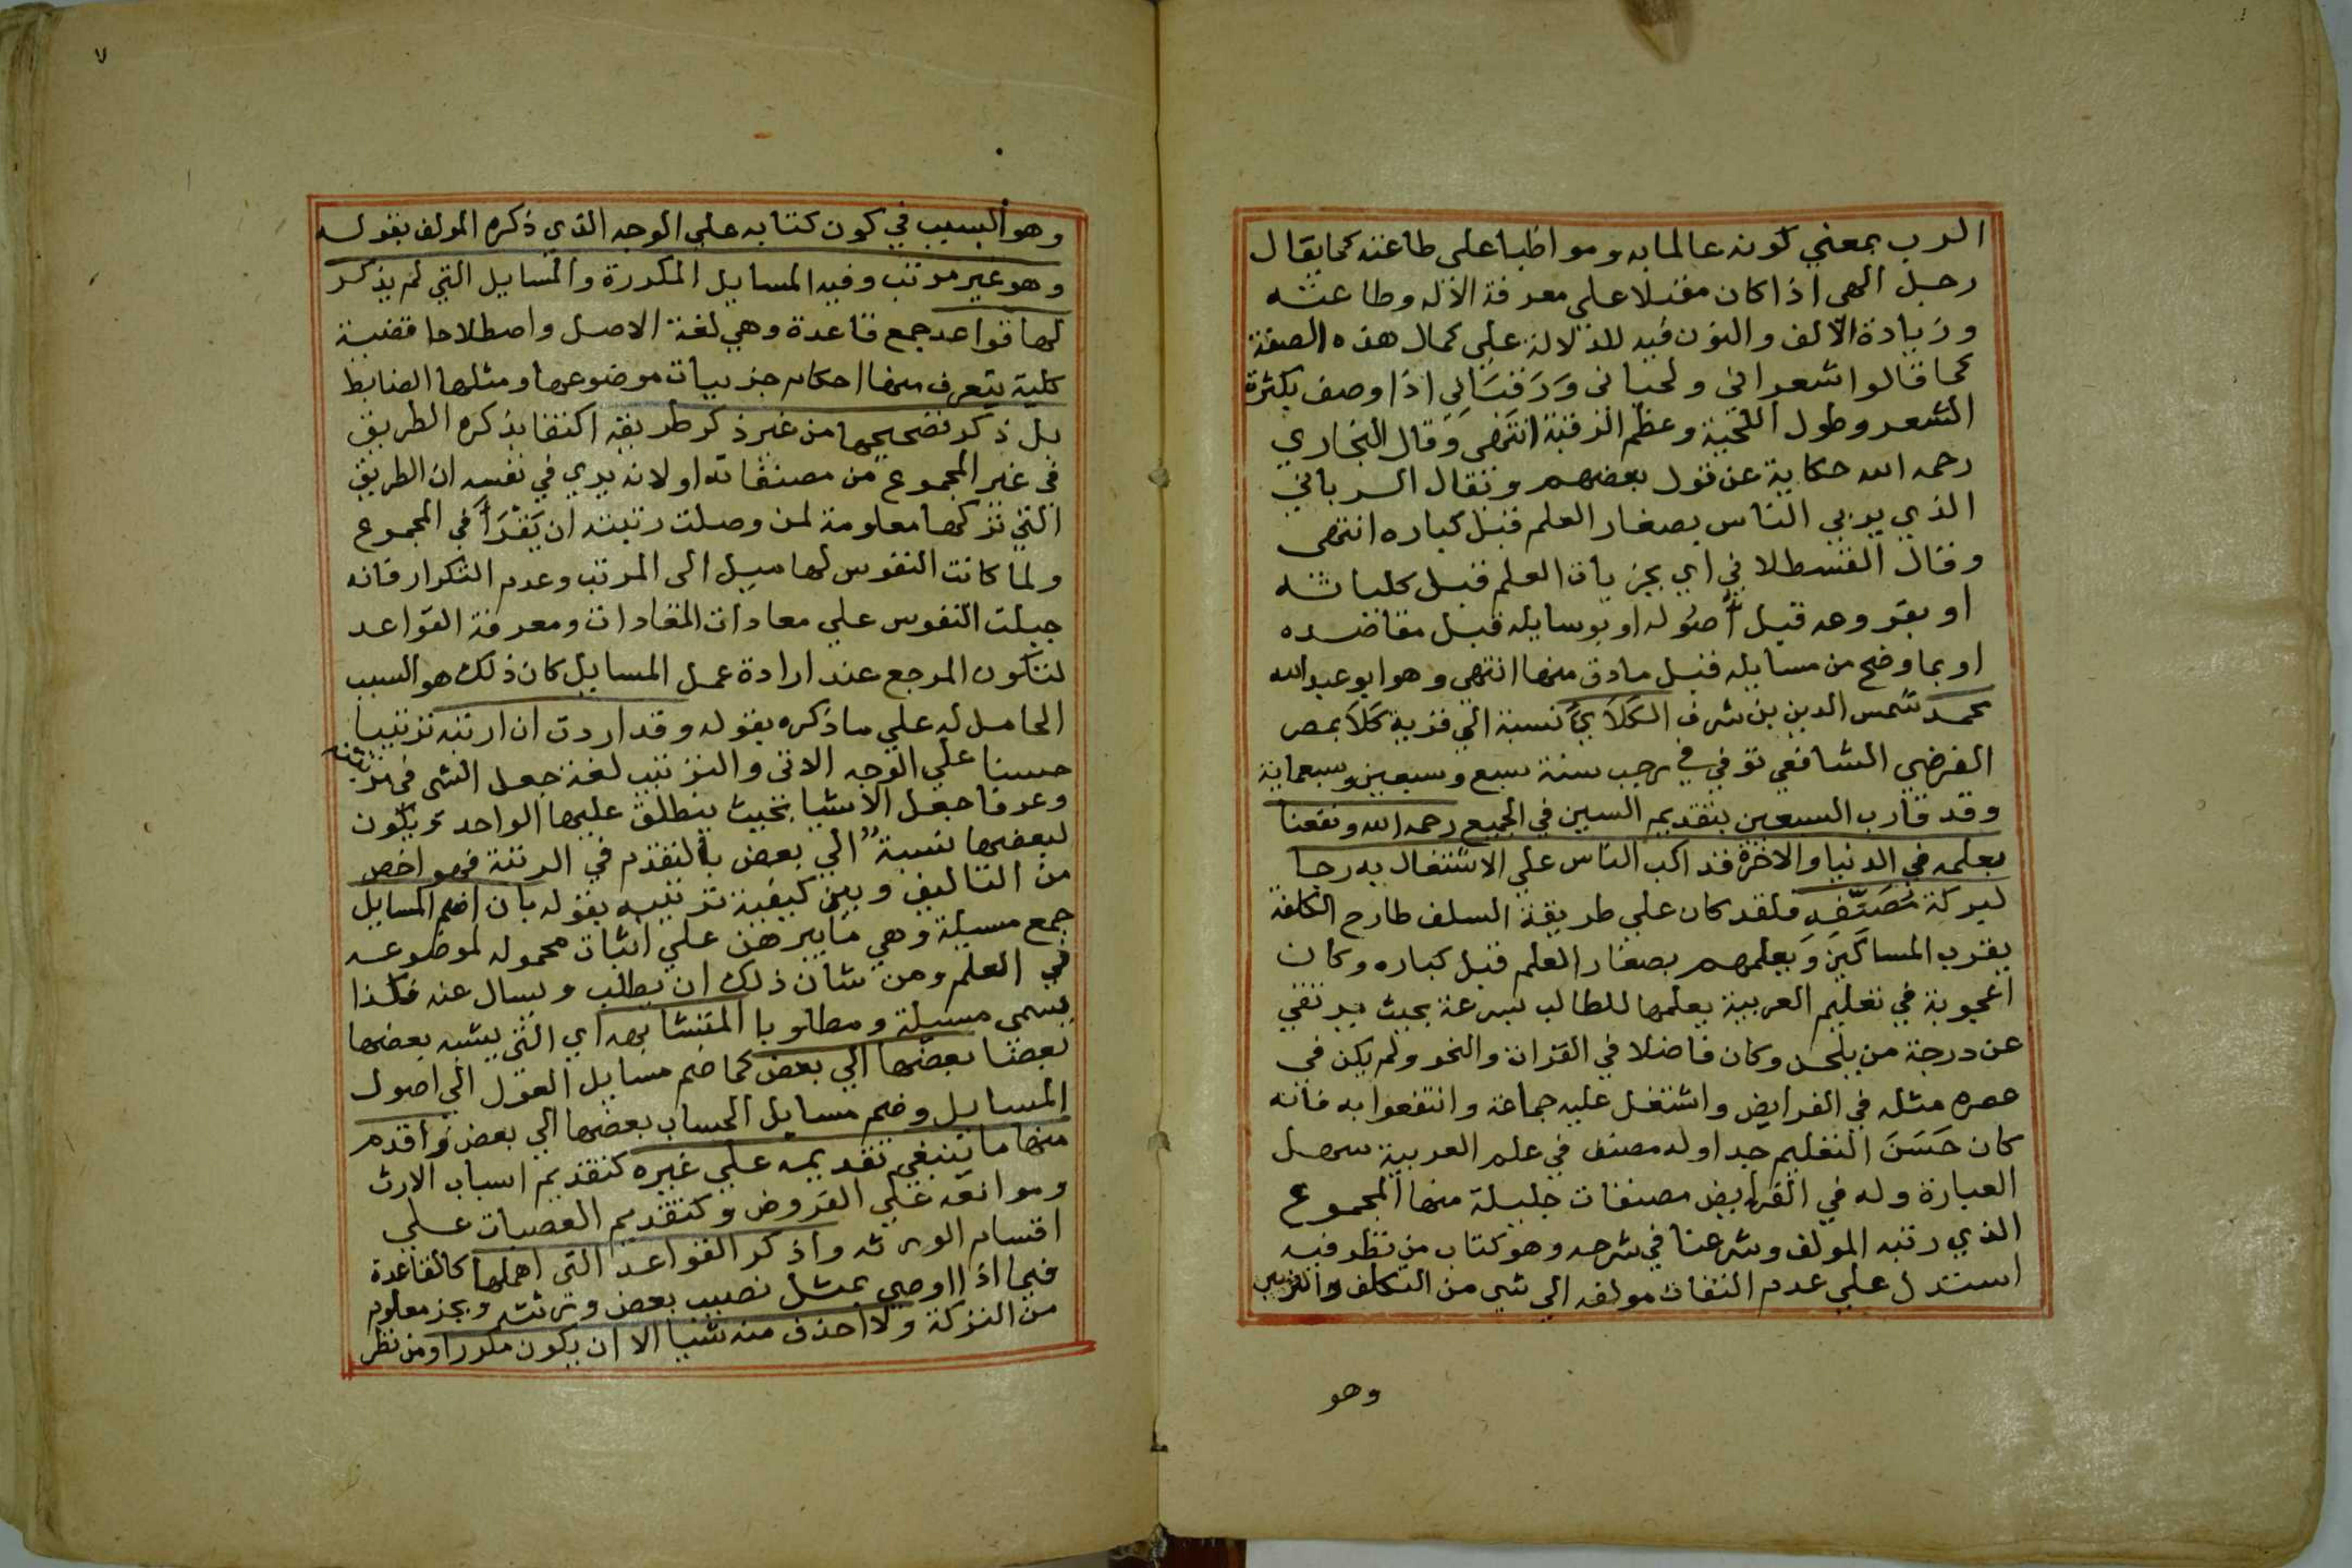 الرب بمعني كونه عالما به ومواظبا على طاعته كما يقال
رجل الهي اذا كان مقبلا على معرفة الاله وطاعته
وزيادة الالف والنون فيه للدلالة علي كمال هذه الصفة
كما قالوا شعراني ولحياني ورقباني اذا وصف بكثرة
الشعر وطول اللحية وعظم الرقبة انتهى وقال البخاري
رحمه الله حكاية عن قول بعضهم ويقال الرباني
الذي يربي الناس بصغار العلم قبل كباره انتهى
وقال القسطلاني اي بجزيات العلم قبل كلياته
او بفروعه قبل أصوله او بوسايله قبل مقاصده
او بما وضح من مسايله قبل مادق منها انتهى وهو ابو عبد الله
محمد شمس الدين بن شرف الكَلَايي نسبة الي قرية كَلَا بمصر
الفرضي الشافعي توفي في رجب سنة سبع وسبعين وسبعماية
وقد قارب السبعين بتقديم السين في الجميع رحمه الله ونفعنا
بعلمه في الدنيا والاخرة قد اكب الناس علي الاشتغال به رجا
لبركة مُصَنِّفِه فلقد كان علي طريقة السلف طارح الكلفة
يقرب المساكين ويعلمهم بصغار العلم قبل كباره وكان
اعجوبة في تعليم العربية يعلمها للطالب بسرعة بحيث يرتقي
عن درجة من يلحن وكان فاضلا في القراة والنحو ولم يكن في
عصره مثله في الفرايض واشتغل عليه جماعة وانتفعوا به فانه
كان حَسَنَ التعليم جدا وله مصنف في علم العربية سهل
العبارة وله في الفرايض مصنفات جليلة منها المجموع
الذي رتبه المولف وشرعنا في شرحه وهو كتاب من نظر فيه
استدل علي عدم التفات مولفه الى شي من التكلف والتزين
وهو
٧
وهو السبب في كون كتابه علي الوجه الذي ذكره المولف بقوله
وهو غير مرتب وفيه المسايل المكررة والمسايل التي لم يذكر
لها قواعد جمع قاعدة وهي لغة الاصل واصطلاحا قضية
كلية يتعرف منها احكام جزييات موضوعها ومثلها الضابط
بل ذكر تصحيحها من غير ذكر طريقه اكتفا بذكره الطريق
في غير المجموع من مصنفاته او لانه يري في نفسه ان الطريق
التي تركها معلومة لمن وصلت رتبته ان يَقْرَأ في المجموع
ولما كانت النفوس لها ميل الى المرتب وعدم التكرار فانه
جبلت النفوس علي معادات المعادات ومعرفة القواعد
لتكون المرجع عند ارادة عمل المسايل كان ذلك هو السبب
الحامل له علي ما ذكره بقوله وقد اردت ان ارتبه ترتيبا
حسنا علي الوجه الاتي والترتيب لغة جعل الشي في مرتبته
وعرفا جعل الاشيا بحيث ينطلق عليها الواحد ويكون
لبعضها نسبة الي بعض بالتقدم في الرتبة فهو اخص
من التاليف وبين كيفية ترتيبه بقوله بان اضم المسايل
جمع مسيلة وهي ما يبرهن علي اثبات محموله لموضوعه
في العلم ومن شان ذلك ان يطلب ويسال عنه فلذا
يسمى مسيلة ومطلوبا المتشابهه اي التي يشبه بعضها
بعضا بعضها الي بعض كما ضم مسايل العول الي اصول
المسايل وضم مسايل الحساب بعضها الي بعض واقدم
منها ما ينبغي تقديمه علي غيره كتقديم اسباب الارث
وموانعه علي الفروض وكتقديم العصبات علي
اقسام الورثه واذكر القواعد التي اهملها كالقاعدة
فيما اذا اوصي بمثل نصيب بعض ورثته وبجز معلوم
من التركة ولا احذف منه شيا الا ان يكون مكررا ومن نظر